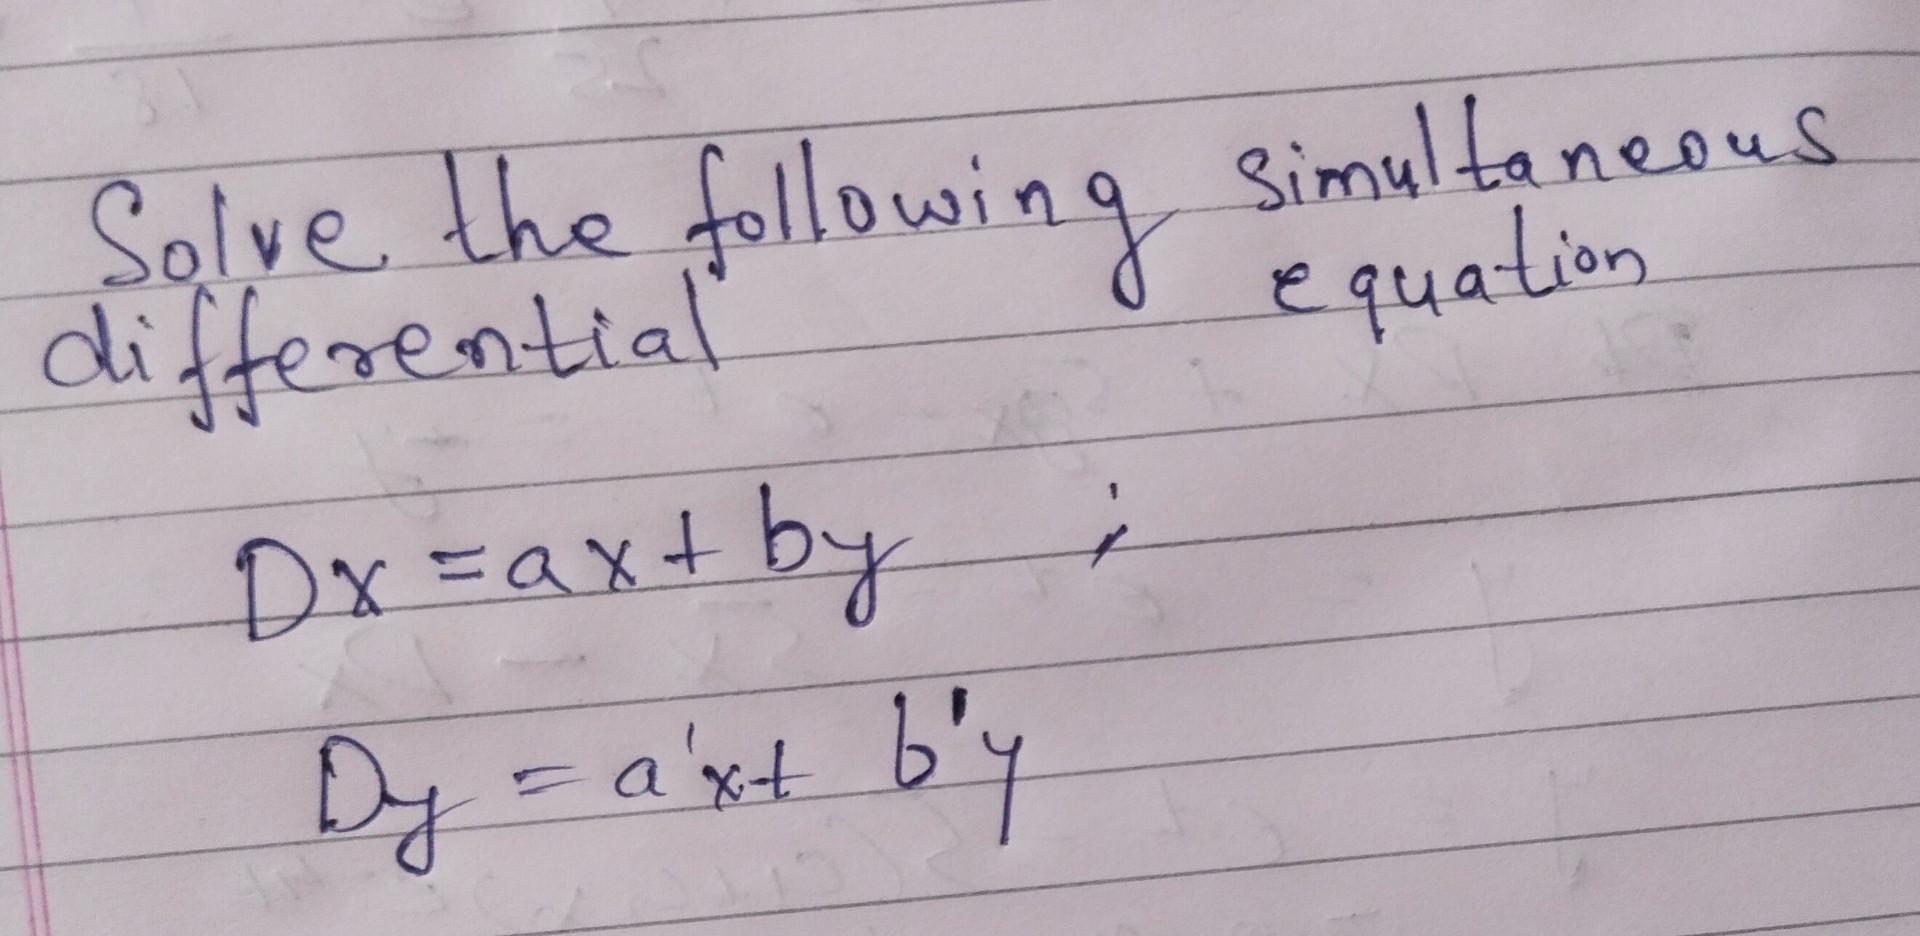 Solve the following simultaneous
differential equation
Dx = ax + by ;
Dy = a'x + b'y